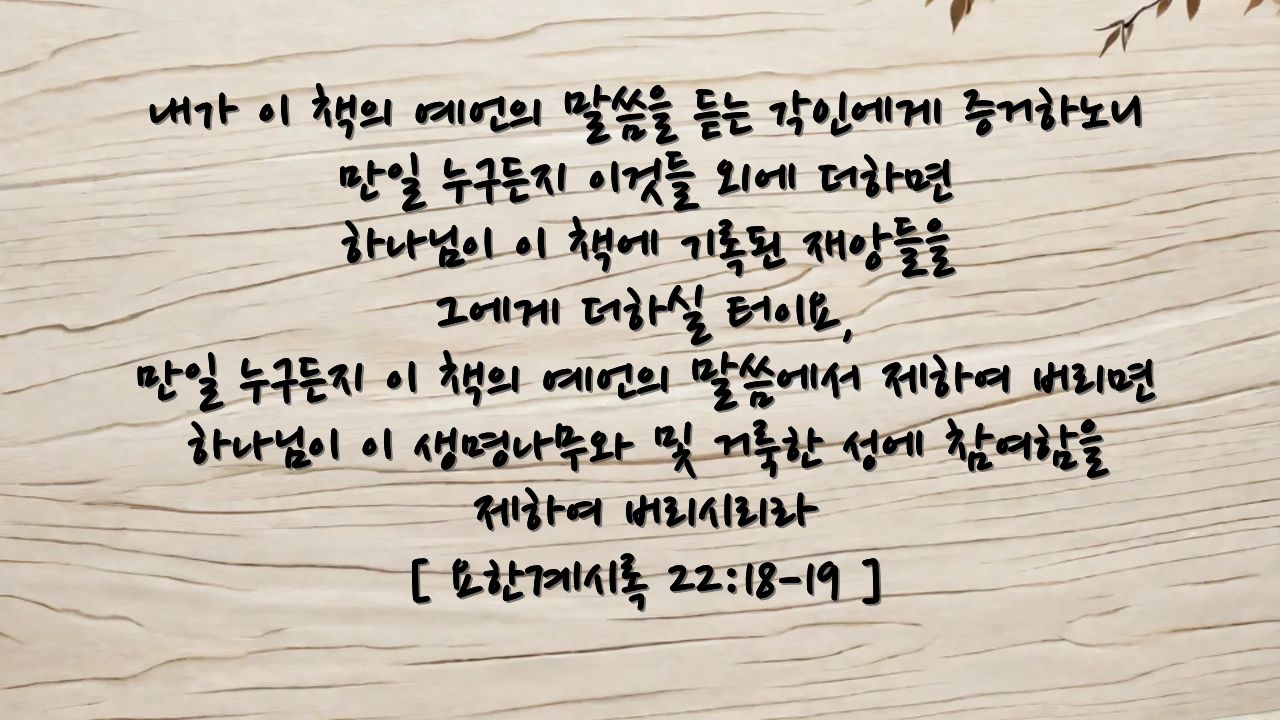 내가 이 책의 예언의 말씀을 듣는 각인에게 증거하노니
만일 누구든지 이것들 외에 더하면
하나님이 이 책에 기록된 재앙들을
그에게 더하실 터이요,
만일 누구든지 이 책의 예언의 말씀에서 제하여 버리면
하나님이 이 생명나무와 및 거룩한 성에 참여함을
제하여 버리시리라
[ 요한계시록 22:18-19 ]